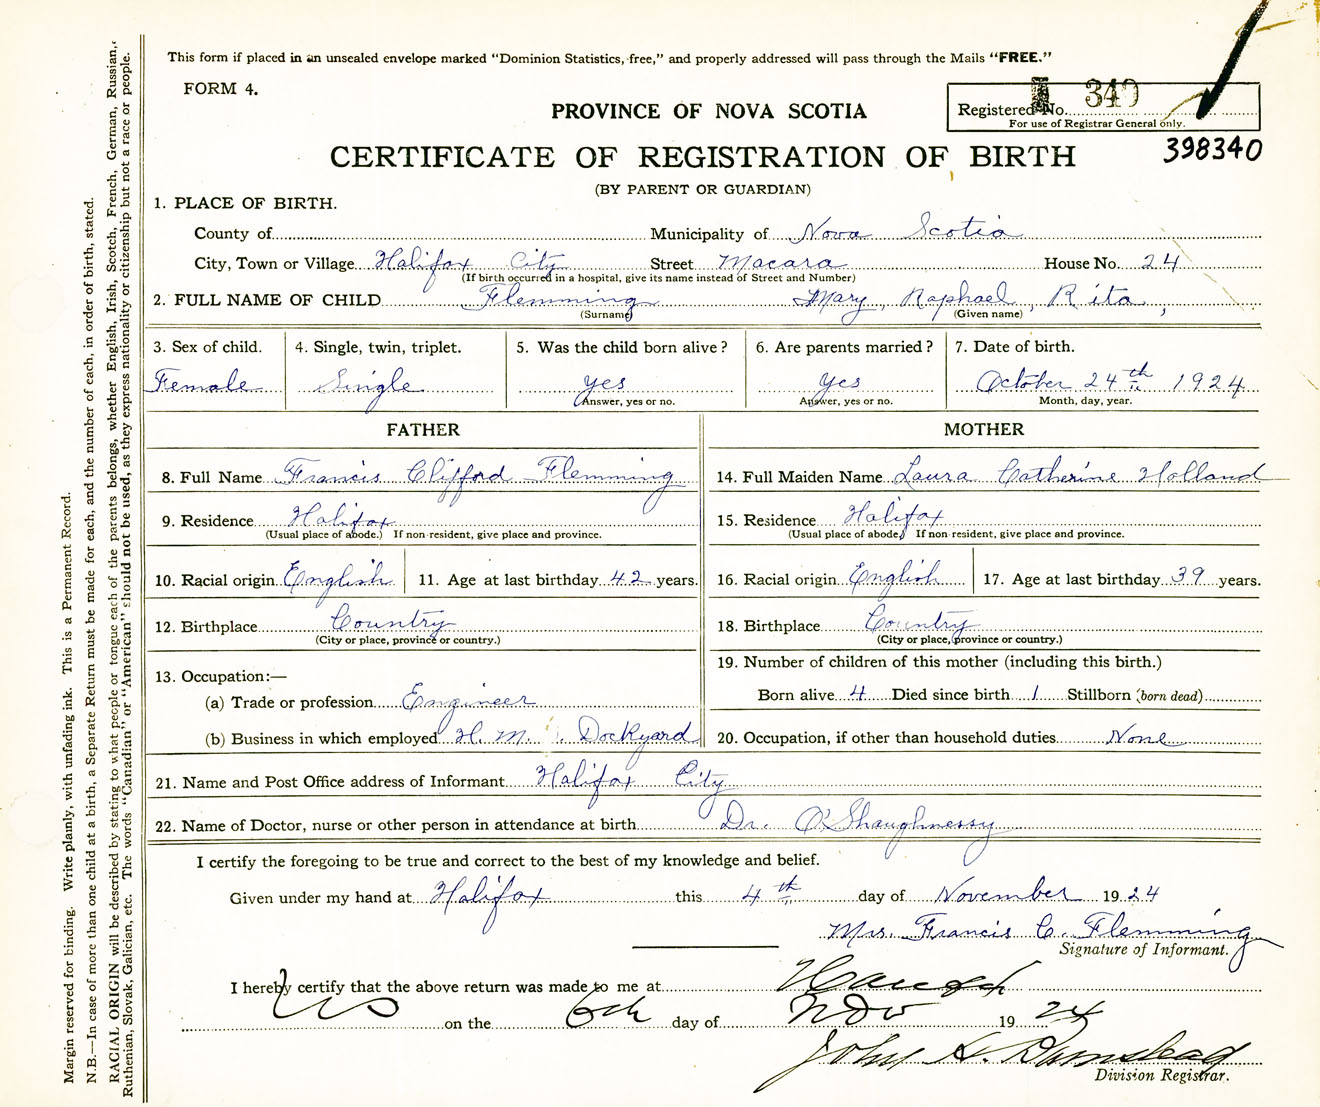 This form if placed in an unsealed envelope marked "Dominion Statistics, free," and properly addressed will pass through the Mails "FREE."
FORM 4.
Registered No. 340
For use of Registrar General only.
PROVINCE OF NOVA SCOTIA
398340
CERTIFICATE OF REGISTRATION OF BIRTH
(BY PARENT OR GUARDIAN)
1. PLACE OF BIRTH.
County of Municipality of Nova Scotia
City, Town or Village Halifax City Street Macara House No. 24
(If birth occurred in a hospital, give its name instead of Street and Number)
2. FULL NAME OF CHILD Flemming Mary, Raphael, Rita,
(Surname) (Given name)
3. Sex of child. 4. Single, twin, triplet. 5. Was the child born alive? 6. Are parents married? 7. Date of birth.
Female Single yes yes October 24th 1924
Answer, yes or no. Answer, yes or no. Month, day, year.
FATHER MOTHER
8. Full Name Francis Clifford Flemming 14. Full Maiden Name Laura Catherine Holland
9. Residence Halifax 15. Residence Halifax
(Usual place of abode.) If non-resident, give place and province. (Usual place of abode.) If non-resident, give place and province.
10. Racial origin English 11. Age at last birthday 42 years. 16. Racial origin English 17. Age at last birthday 39 years.
12. Birthplace Country 18. Birthplace Country
(City or place, province or country.) (City or place, province or country.)
13. Occupation:— 19. Number of children of this mother (including this birth.)
(a) Trade or profession Engineer Born alive 4 Died since birth 1 Stillborn (born dead)
(b) Business in which employed H. M. Dockyard 20. Occupation, if other than household duties None
21. Name and Post Office address of Informant Halifax City
22. Name of Doctor, nurse or other person in attendance at birth Dr. O'Shaughnessy
I certify the foregoing to be true and correct to the best of my knowledge and belief.
Given under my hand at Halifax this 4th day of November 1924
Mrs. Francis C. Flemming
Signature of Informant.
I hereby certify that the above return was made to me at
on the 6th day of Nov 1924
John
Division Registrar.
Margin reserved for binding. Write plainly, with unfading ink. This is a Permanent Record.
N.B.—In case of more than one child at a birth, a Separate Return must be made for each, and the number of each, in order of birth, stated.
RACIAL ORIGIN will be described by stating to what people or tongue each of the parents belongs, whether English, Irish, Scotch, French, German, Russian,
Ruthenian, Slovak, Galician, etc. The words "Canadian" or "American" should not be used, as they express nationality or citizenship but not a race or people.